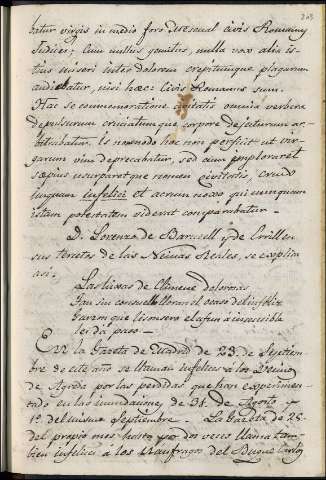 203
batur virgis in medio foro Messanae civis Romanus
Judices: Cum nullus gemitus, nulla vox alia is-
tius miseri inter dolorem crepitumque plagarum
audiebatur, nisi haec: Civis Romanus sum.
Hac se commemoratione civitatis omnia verbera
depulsurum cruciatumque corpore dejecturum ar-
bitrabatur. Is non modo hoc non perfecit ut vir-
garum vim deprecabatur, sed cum imploraret
saepius usurparet que nomen civitatis, crux
inquam infelici et aerumnoso qui nunquam
istam potestatem viderat comparabatur.
D. Lorenzo de
sus de las Reales, se explica
asi:
Las hixas de dolorosas
sin consuelo lloran el ocaso del infeliz
que
paso
En la Gazeta de Madrid de 23. de Septiem-
bre de este año se llaman infelices a los Vecinos
de por las perdidas que han experimen-
tado en las inundaciones de 31. de Agosto y
1º. del mismo Septiembre. La Gazeta de 25
del propio mes hasta por dos veces llama tam-
bien infelices á los Naufragos del Buque